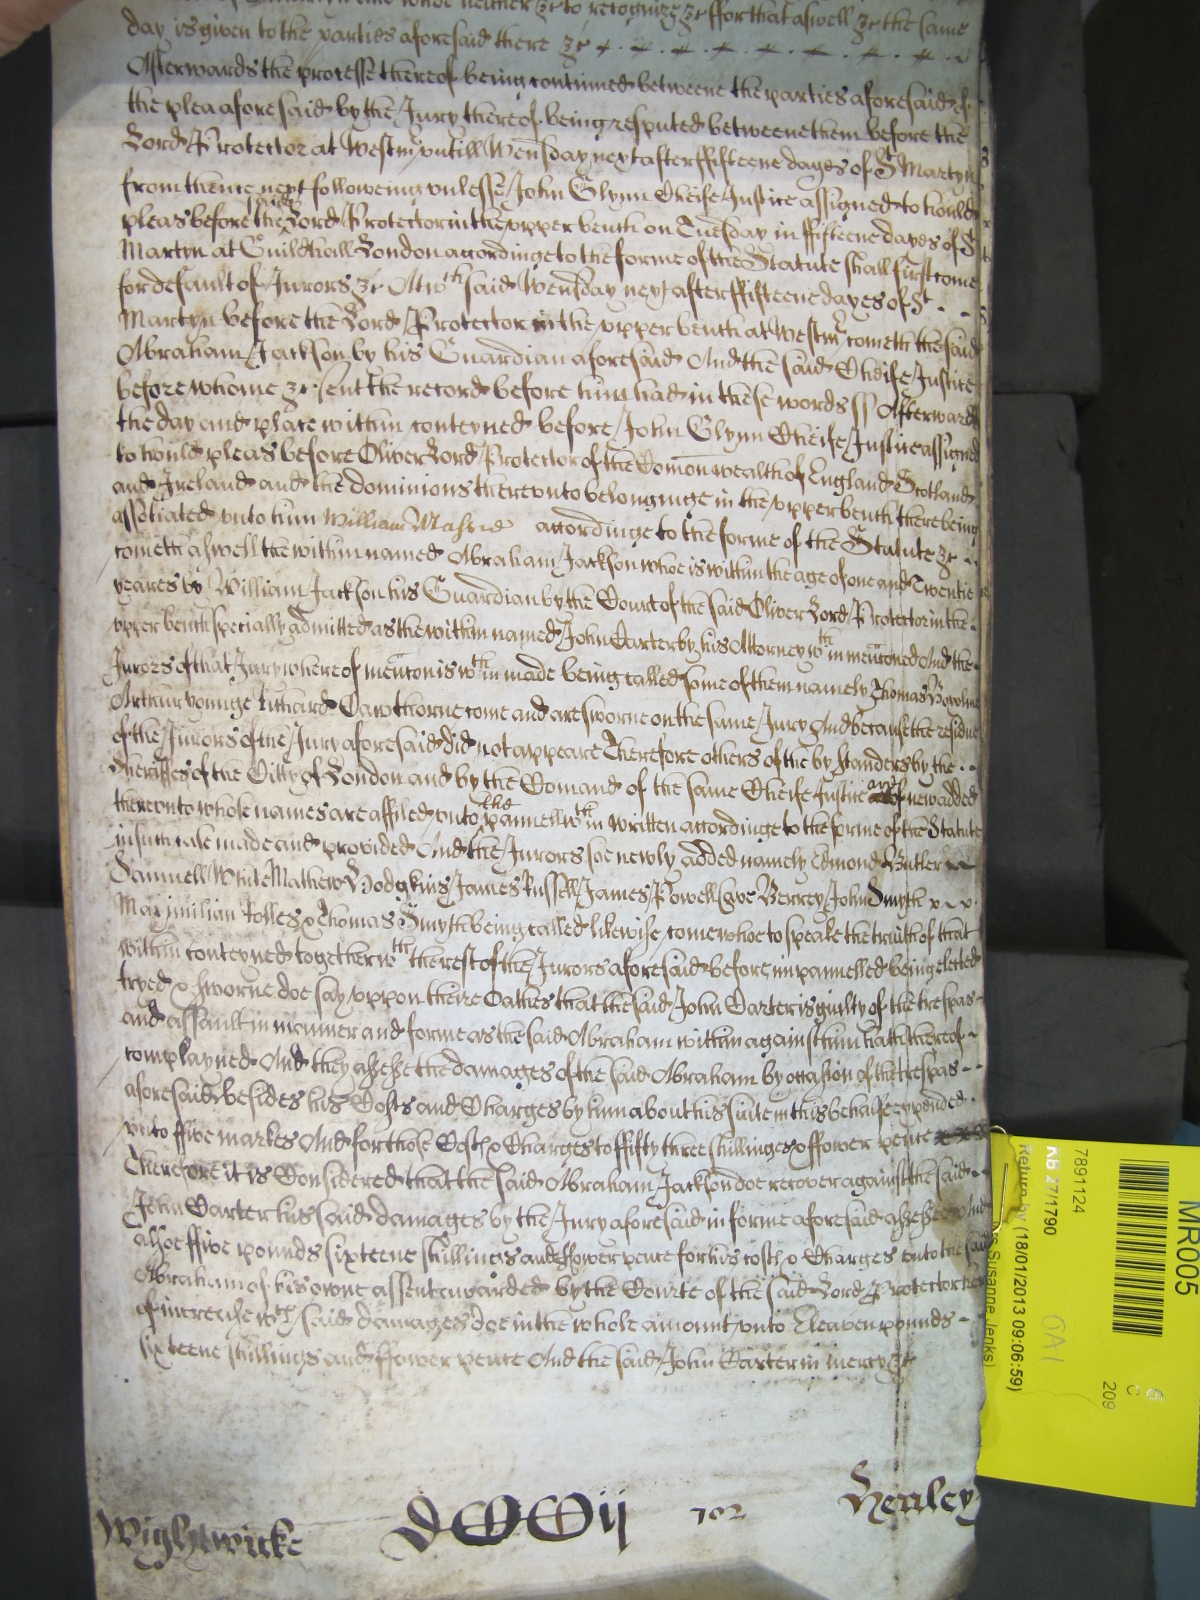 who neither &c to recognize &c ffor that aswell &c the same
day is given to the parties aforesaid there &c
Afterwards the processe thereof being continued betweene the parties aforesaid of
the plea aforesaid by the Jury thereof being respited betweene them before the
Lord Protector at Westmr untill Wensday next after ffifteene dayes of St Martyn
from thence next followeing unlesse John Glynn Cheife Justice assigned to hould
pleas before the said Lord Protector in the upper bench on Tuesday in ffifteene dayes of St
Martyn at Guildhall London accordinge to the forme of the Statute shall first come
for default of Jurors &c Att wth said Wensday next after ffifteene dayes of St
Martyn before the Lord Protector in the upper bench at Westmr cometh the said
Abraham Jackson by his Guardian aforesaid And the said Cheife Justice
before whome &c sent the record before him had in these words ss Afterwards
the day and place within conteyned before John Glynn Cheife Justice assigned
to hould pleas before Oliver Lord Protector of the Comonwealth of England Scotland
and Ireland and the dominions thereunto belonginge in the upper bench there being
assotiated unto him William accordinge to the forme of the Statute &c
cometh aswell the within named Abraham Jackson whoe is within the age of one and Twentie
yeares by William Jackson his Guardian by the Court of the said Oliver Lord Protector in the
upper bench specially admitted as the within named John Carter by his Attorney wthin menconed And the
Jurors of that Jury whereof mencon is wthin made being called some of them namely Thomas
Arthur Younge Richard Cawthorne come and are sworne on the same Jury And because the residue
of the Jurors of the Jury aforesaid did not appeare Therefore others of the by standers by the
Sheriffes of the Citty of London and by the Comand of the same Cheife Justice are newe added
thereunto whose names are affiled unto the pannell wthin written accordinge to the forme of the Statute
in such case made and provided And the Jurors soe newly added namely Edmond Butler
Samuell White Mathew Hodgkins James Russell James Powell John Smyth
Maximilian Thomas Smyth being called likewise come whoe to speake the truth of that
within conteyned together wth the rest of the Jurors aforesaid before impannelled being elected
tryed & sworne doe say uppon theire Oathes that the said John Carter is guilty of the trespas
and assault in manner and forme as the said Abraham within against him hath thereof
complayned And they assesse the damages of the said Abraham by occasion of the trespas
aforesaid besides his Costs and Charges by him about his suite in this behalfe expended
unto ffive markes And for those Costs & Charges to ffifty three shillinges & ffower pence
Therefore it is Considered that the said Abraham Jackson doe recover against the said
John Carter his said damages by the Jury aforesaid in forme aforesaid assessed And
alsoe ffive pounds sixteene shillings and ffower pence for his costs & Charges unto the said
Abraham of his owne assent awarded by the Courte of the said Lord Protector here
of increase wch said damages doe in the whole amount unto Eleaven pounds
sixteene shillings and ffower pence And the said John Carter in mercy &c
Wightwicke
702
Henley
MR005
7891124
KB 27/1790
Return by (18/01/2013 09:06:59)
Susanne Jenks)
OA1
G
C
209